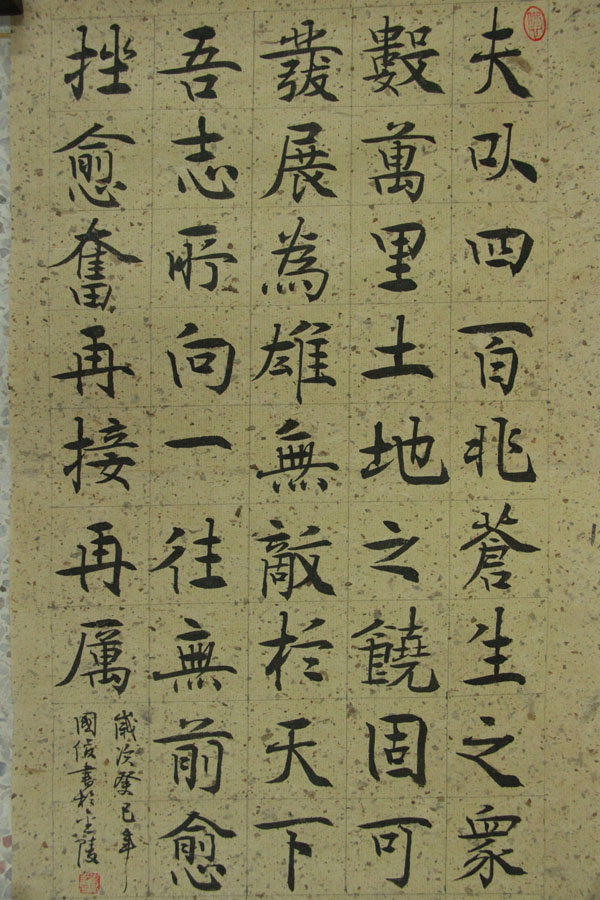 夫以四百兆蒼生之衆
數萬里土地之饒固可
發展為雄無敵於天下
吾志所向一往無前愈
挫愈奮再接再厲
歲次癸巳年
國信書於金陵